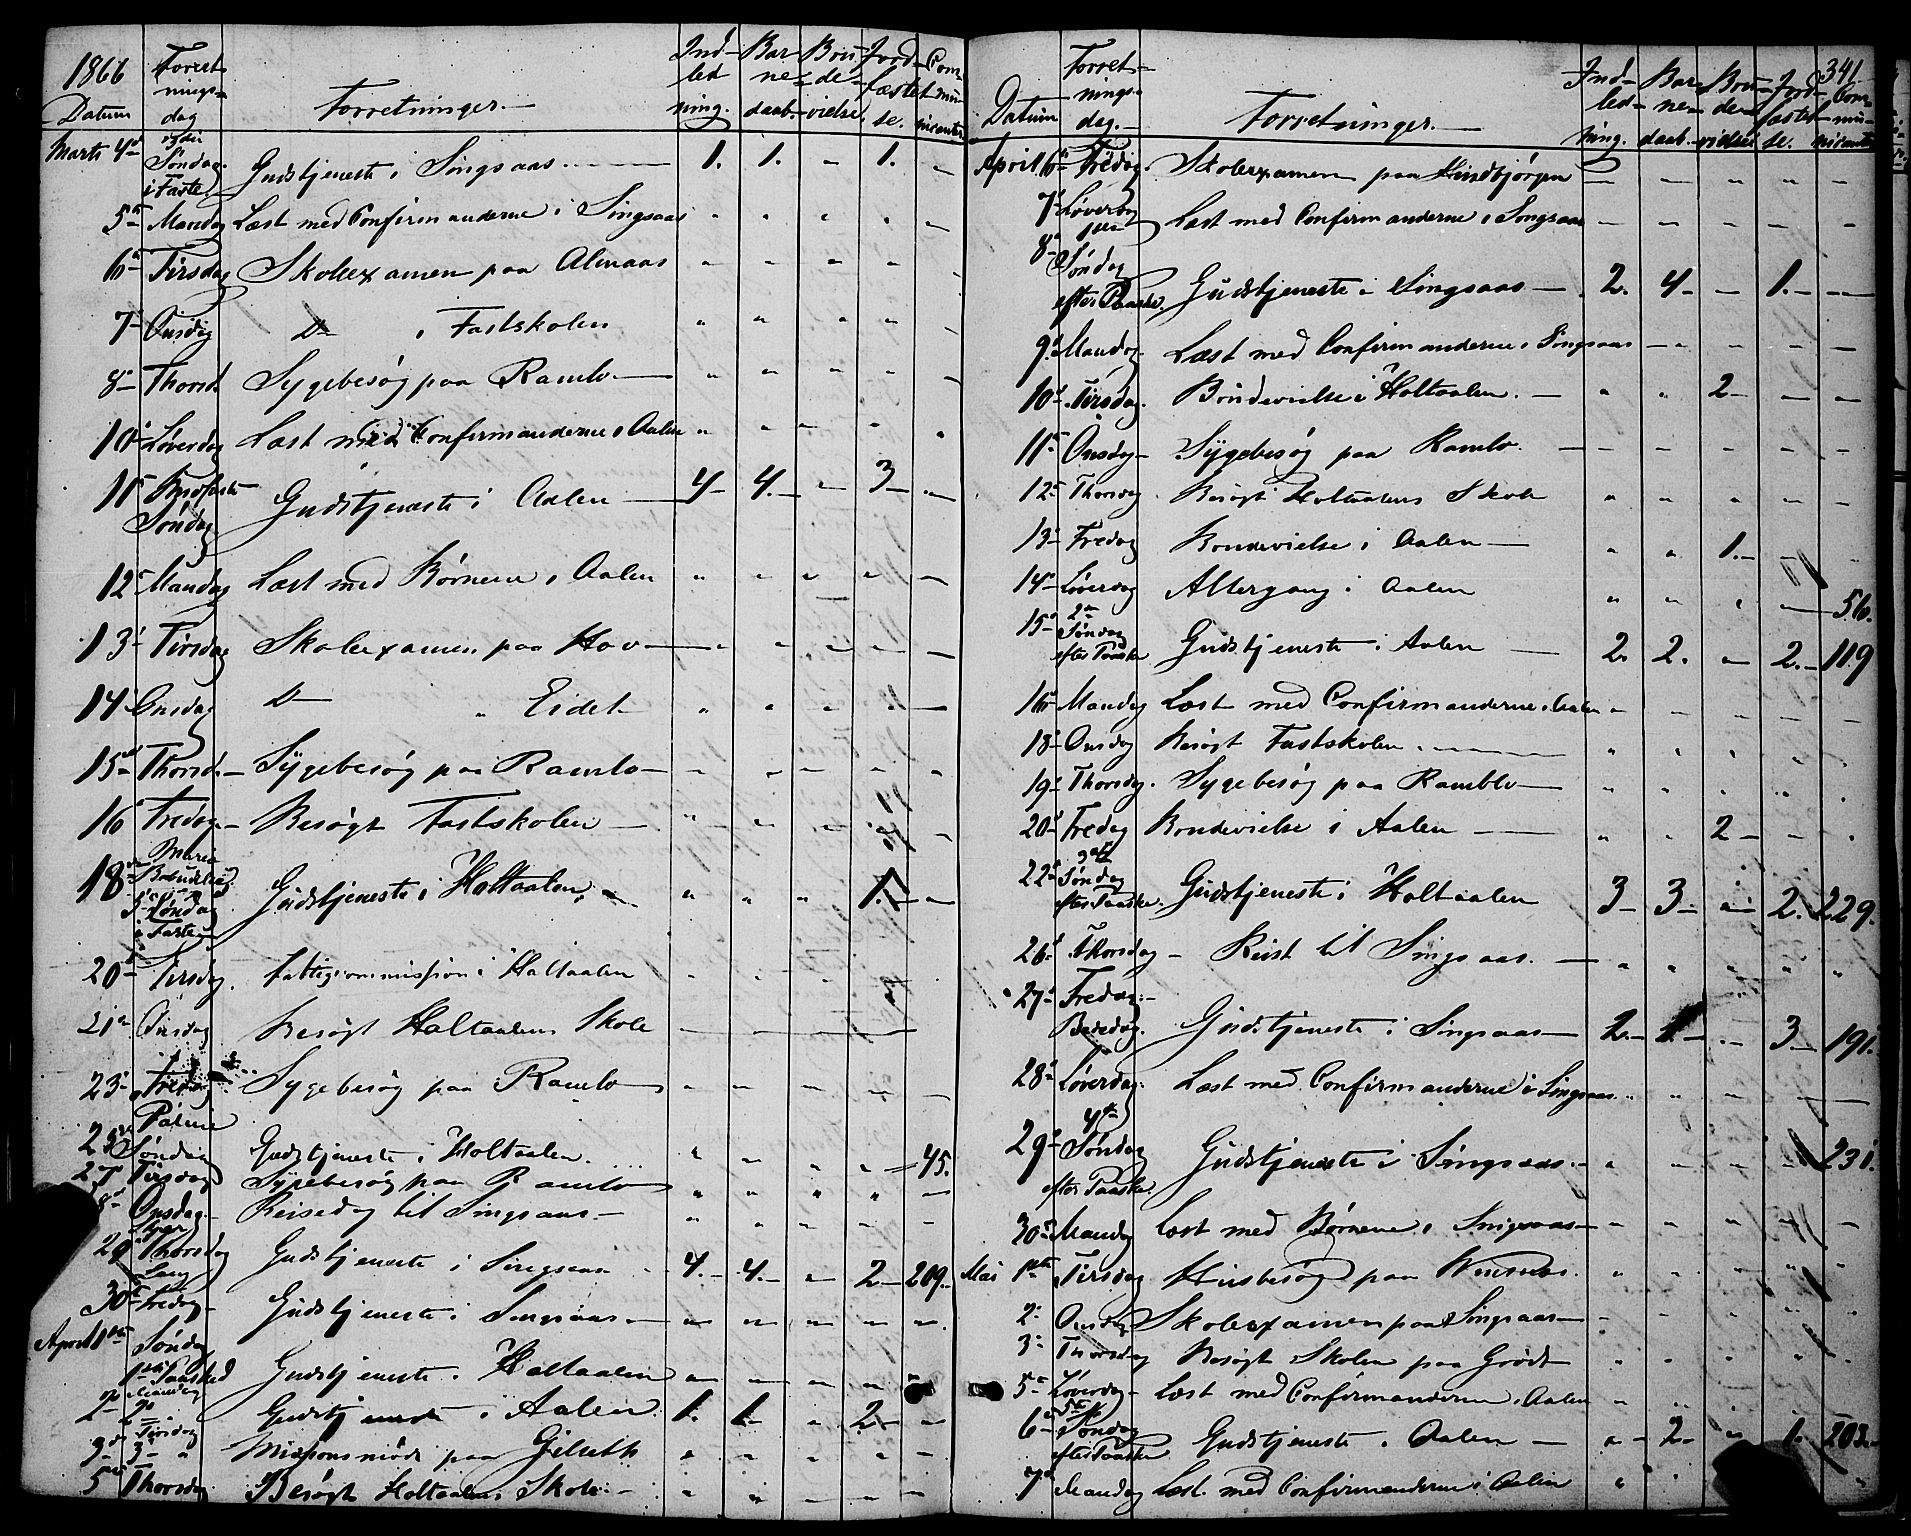 1866 Forret- Ind- Bar- Bru- Jord- Com-
nings- led- ne- de- fæstel- mu-
Datum dag Forretninger. ning. daab. vielse. se. nicanter
Marts 4de Søndag i Faste Gudstjeneste i Singsaas 1. 1. - 1. -
5te Mandag Læst med Confirmanderne i Singsaas
6te Tirsdag Skoleexamen paa Almaas
7 Onsdag Do i Fastskolen
8 Thorsd. Sygebesøg paa Ramlo
10 Løverdag Læst med Confirmanderne i Aalen
11 Søndag Gudstjeneste i Aalen 4 4. - 3 -
12 Mandag Læst med Børnene i Aalen
13 Tirsdag Skoleexamen paa Hov
14 Onsdag Do " Eidet
15 Thorsd. Sygebesøg paa Ramlo
16 Fredag Besøgt Fastskolen
18 Mariæ Bebudelsesd. 5te Søndag i Faste Gudstjeneste i Holtaalen " " " 1. -
20 Tirsdag Fattigcommission i Holtaalen
21 Onsdag Besøgt Holtaalens Skole
23 Fredag Sygebesøg paa Ramlo
25 Palme Søndag Gudstjeneste i Holtaalen 45.
27 Tirsdag Sygebesøg paa Ramlo
28 Onsdag Reisedag til Singsaas
29 Skjær Thorsdag Gudstjeneste i Singsaas 4. 4. - 2 209.
30 Lang Fredag Gudstjeneste i Singsaas
April 1ste Søndag 1ste Paasked Gudstjeneste i Holtaalen
2 Mandag 2 Gudstjeneste i Aalen 1. 1 - 2 -
3 Tirsdag 3 " Missionsmøde paa Gilseth
5 Thorsdag Besøgt Holtaalens Skole
341
Forret- Ind- Bar- Bru- Jord- Com-
nings- led- ne- de- fæstel- mu-
Datum dag. Forretninger. ning. daab. vielse se. nicanter
April 6 Fredag. Skoleexamen paa Kindbjørgen
7 Løverdag Læst med Confirmanderne i Singsaas
8 1ste Søndag efter Paaske Gudstjeneste i Singsaas 2. 4 - 1. -
9 Mandag. Læst med Confirmanderne i Singsaas
10 Tirsdag. Brudevielse i Holtaalen. " " 2 - -
11 Onsdag Sygebesøg paa Ramlo
12 Thorsdag Besøgt Holtaalens Skole
13 Fredag Brudevielse i Aalen " " 1. - -
14 Løverdag Altergang i Aalen 56.
15 2den Søndag efter Paaske Gudstjeneste i Aalen 2. 2. - 2. 119
16 Mandag Læst med Confirmanderne i Aalen
18 Onsdag Besøgt Fastskolen
19 Thorsdag. Sygebesøg paa Ramblo
20 Fredag Brudevielse i Aalen " " 2 - "
22 3die Søndag efter Paaske. Gudstjeneste i Holtaalen 3 3 - 2. 229.
26 Thorsdag Reist til Singsaas.
27 Fredag: Bededag. Gudstjeneste i Singsaas 2. 1. - 3 191.
28 Løverdag. Læst med Confirmanderne i Singsaas
29 4de Søndag efter Paaske. Gudstjeneste i Singsaas. 231.
30 Mandag Læst med Børnene i Singsaas
Mai 1ste Tirsdag Husbesøg paa
2 Onsdag Skoleexamen paa Singsaas
3 Thorsdag Besøgt Skolen paa Grødt
5 Løverdag Læst med Confirmanderne i Aalen
6 5te Søndag efter Paaske Gudstjeneste i Aalen " 2 " 1. 203.
7 Mandag Læst med Confirmanderne i Aalen